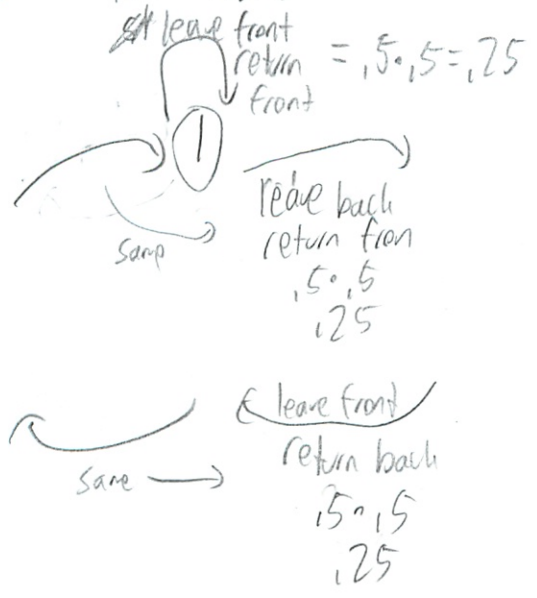 leave front
return
front
= .5·.5=.25
1
same
leave back
return fron
.5·.5
.25
leave front
return back
same
.5·.5
.25